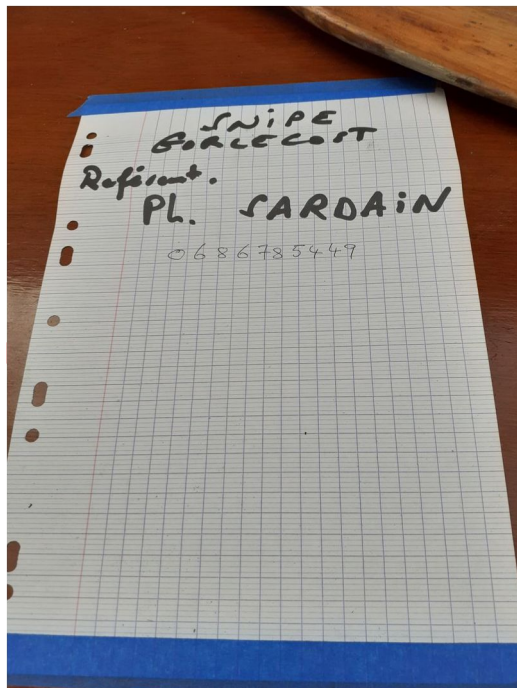 SNiPE
GORLECOST
Référent.
Ph. SARDAiN
0686785449